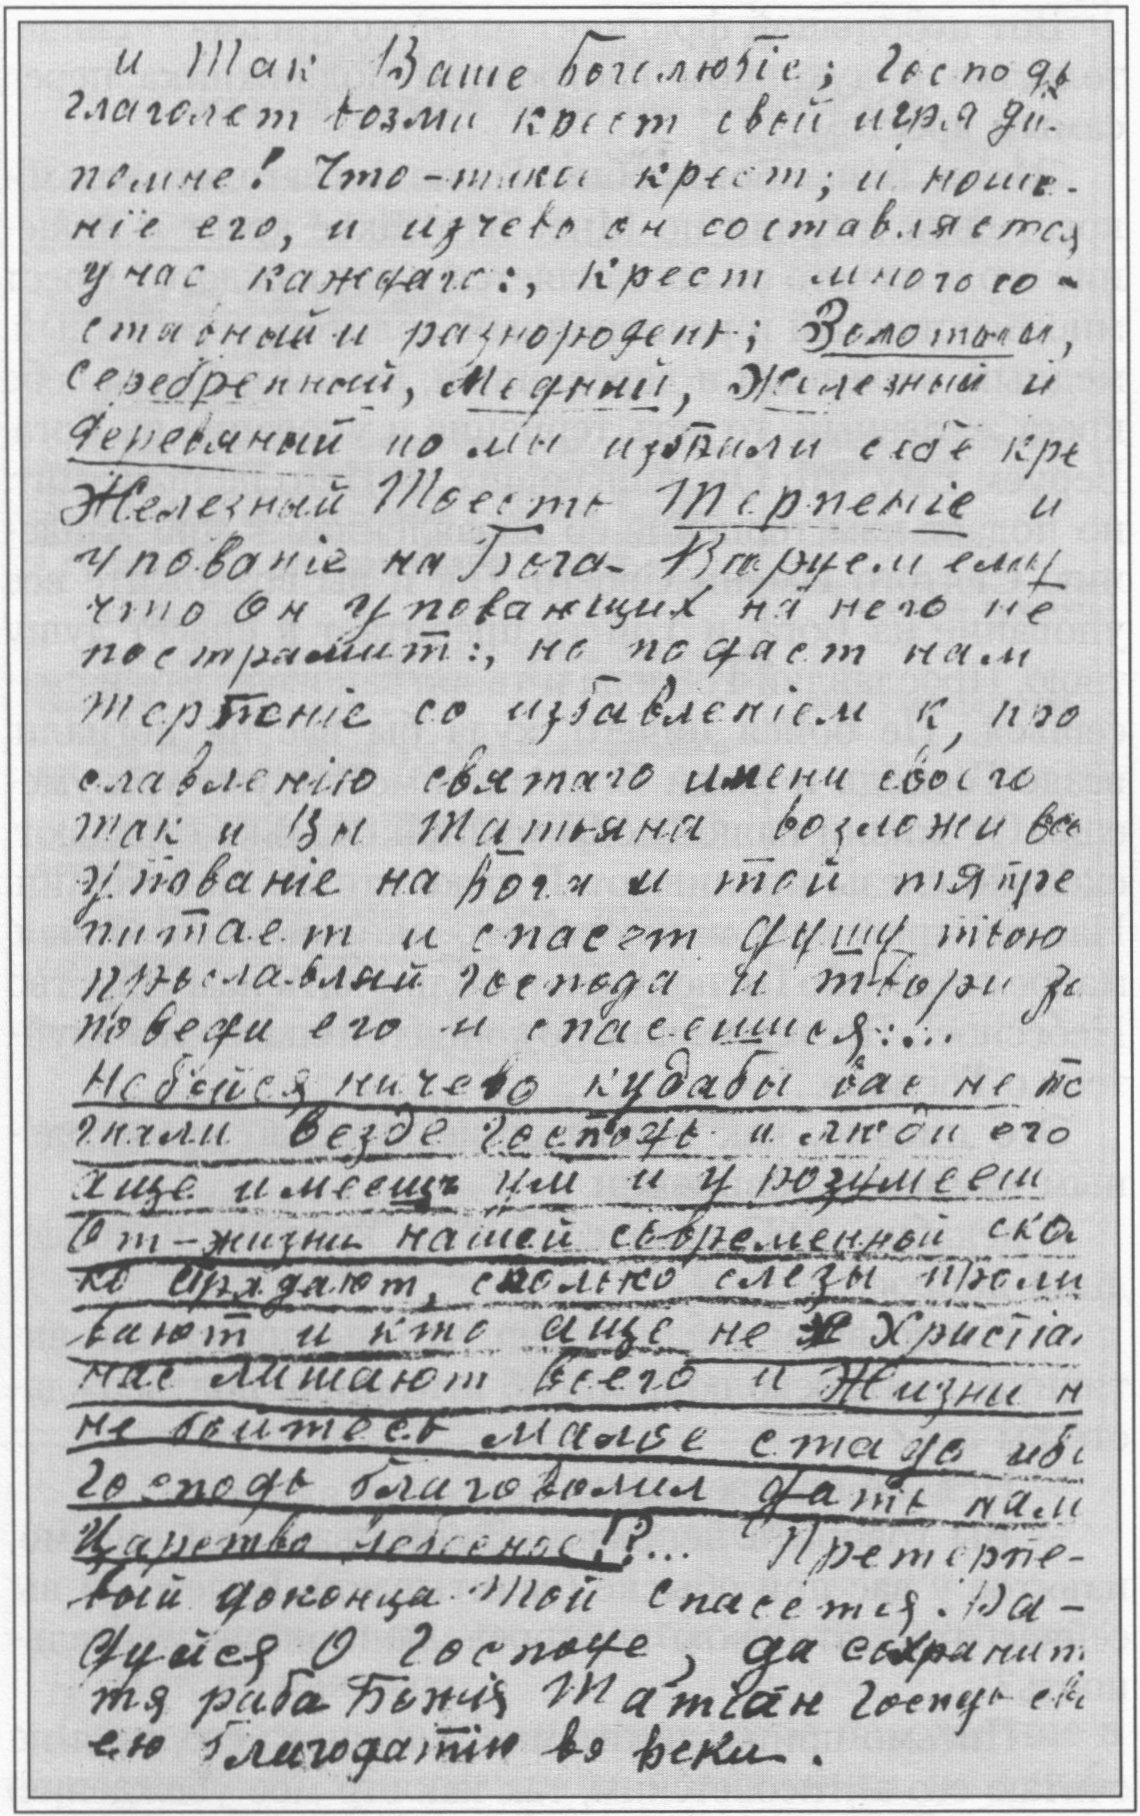 и Так Ваше боголюбіе; Господь
глаголет возми крест свой и гряди
помне! Что-такое крест; и ноше-
ніе его, и изчево он составляется
у нас каждаго:, крест многосо-
ставный и разнороденъ; Золотыи,
Серебренный, Медный, Железный и
деревяный но мы избрали себе кре
Железный Тоесть Терпеніе и
упованіе на Бога- Веруем ему
что Он уповающих на него не
пострамит:, но подаст нам
терпеніе со избавленіем к, про
славленію святаго имени своего
так и Вы Татьяна возложи все
упованіе на Бога и той тя пре
питает и спасет душу твою
прославляй Господа и твори за
поведи его и спасешися:...
Небойся ничево кудабы вас не по
гнали везде Господь и люди его
аще имеешъ ум и уразумееш
От-жизни нашей современной ско
ко страдают, сколько слезы проли
вают и кто аще не Христіа
нас лишают всего и Жизни н
не бойтесь малое стадо ибо
Господь благоволил дать нам
Царство небесное!?... Претерпе-
вый доконца Той спасется. Ра-
дуйся О Господе, да сохранит
тя раба Божія Татіан Господь сво
ею благодатію во веки.